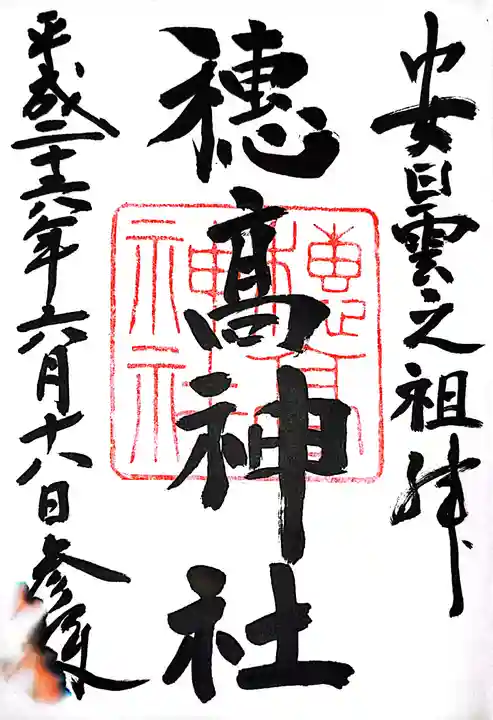 安曇之祖神
穗髙神社
平成二十六年六月十八日参拝
穗高神社